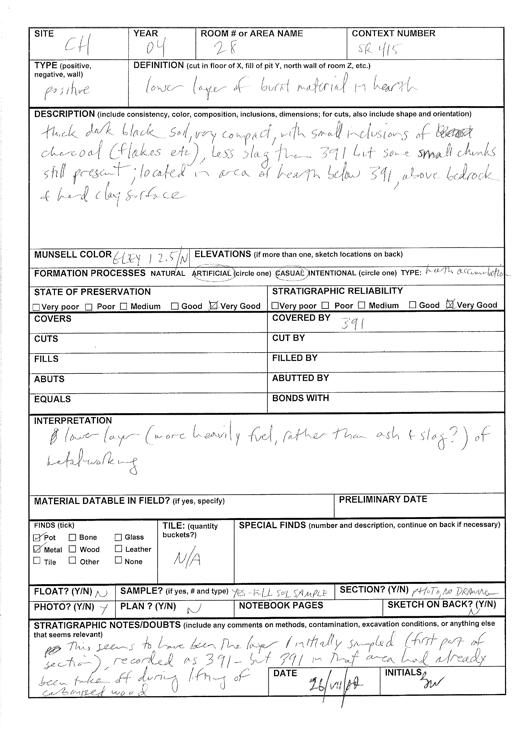 SITE YEAR ROOM # or AREA NAME CONTEXT NUMBER
CH 04 28 SR 415
TYPE (positive, negative, wall) DEFINITION (cut in floor of X, fill of pit Y, north wall of room Z, etc.)
positive lower layer of burnt material in hearth
DESCRIPTION (include consistency, color, composition, inclusions, dimensions; for cuts, also include shape and orientation)
thick dark black soil, very compact, with small inclusions of
charcoal (flakes etc), less slag than 391 but some small chunks
still present; located in area of hearth below 391, above bedrock
& hard clay surface
MUNSELL COLOR GLEY 1 2.5/N ELEVATIONS (if more than one, sketch locations on back)
FORMATION PROCESSES NATURAL ARTIFICIAL (circle one) CASUAL INTENTIONAL (circle one) TYPE: hearth accumulation
STATE OF PRESERVATION STRATIGRAPHIC RELIABILITY
Very poor Poor Medium Good Very Good Very poor Poor Medium Good Very Good
COVERS COVERED BY 391
CUTS CUT BY
FILLS FILLED BY
ABUTS ABUTTED BY
EQUALS BONDS WITH
INTERPRETATION
lower layer (more heavily fuel, rather than ash & slag?) of
metalworking
MATERIAL DATABLE IN FIELD? (if yes, specify) PRELIMINARY DATE
FINDS (tick) TILE: (quantity buckets?) SPECIAL FINDS (number and description, continue on back if necessary)
Pot Bone Glass
Metal Wood Leather N/A
Tile Other None
FLOAT? (Y/N) N SAMPLE? (if yes, # and type) YES - FILL SOIL SAMPLE SECTION? (Y/N) PHOTO, NO DRAWING
PHOTO? (Y/N) Y PLAN ? (Y/N) N NOTEBOOK PAGES SKETCH ON BACK? (Y/N) N
STRATIGRAPHIC NOTES/DOUBTS (include any comments on methods, contamination, excavation conditions, or anything else
that seems relevant)
This seems to have been the layer I initially sampled (first part of
section), recorded as 391 - but 391 in that area had already
been taken off during lifting of
carbonized wood
DATE 26/VII/ INITIALS